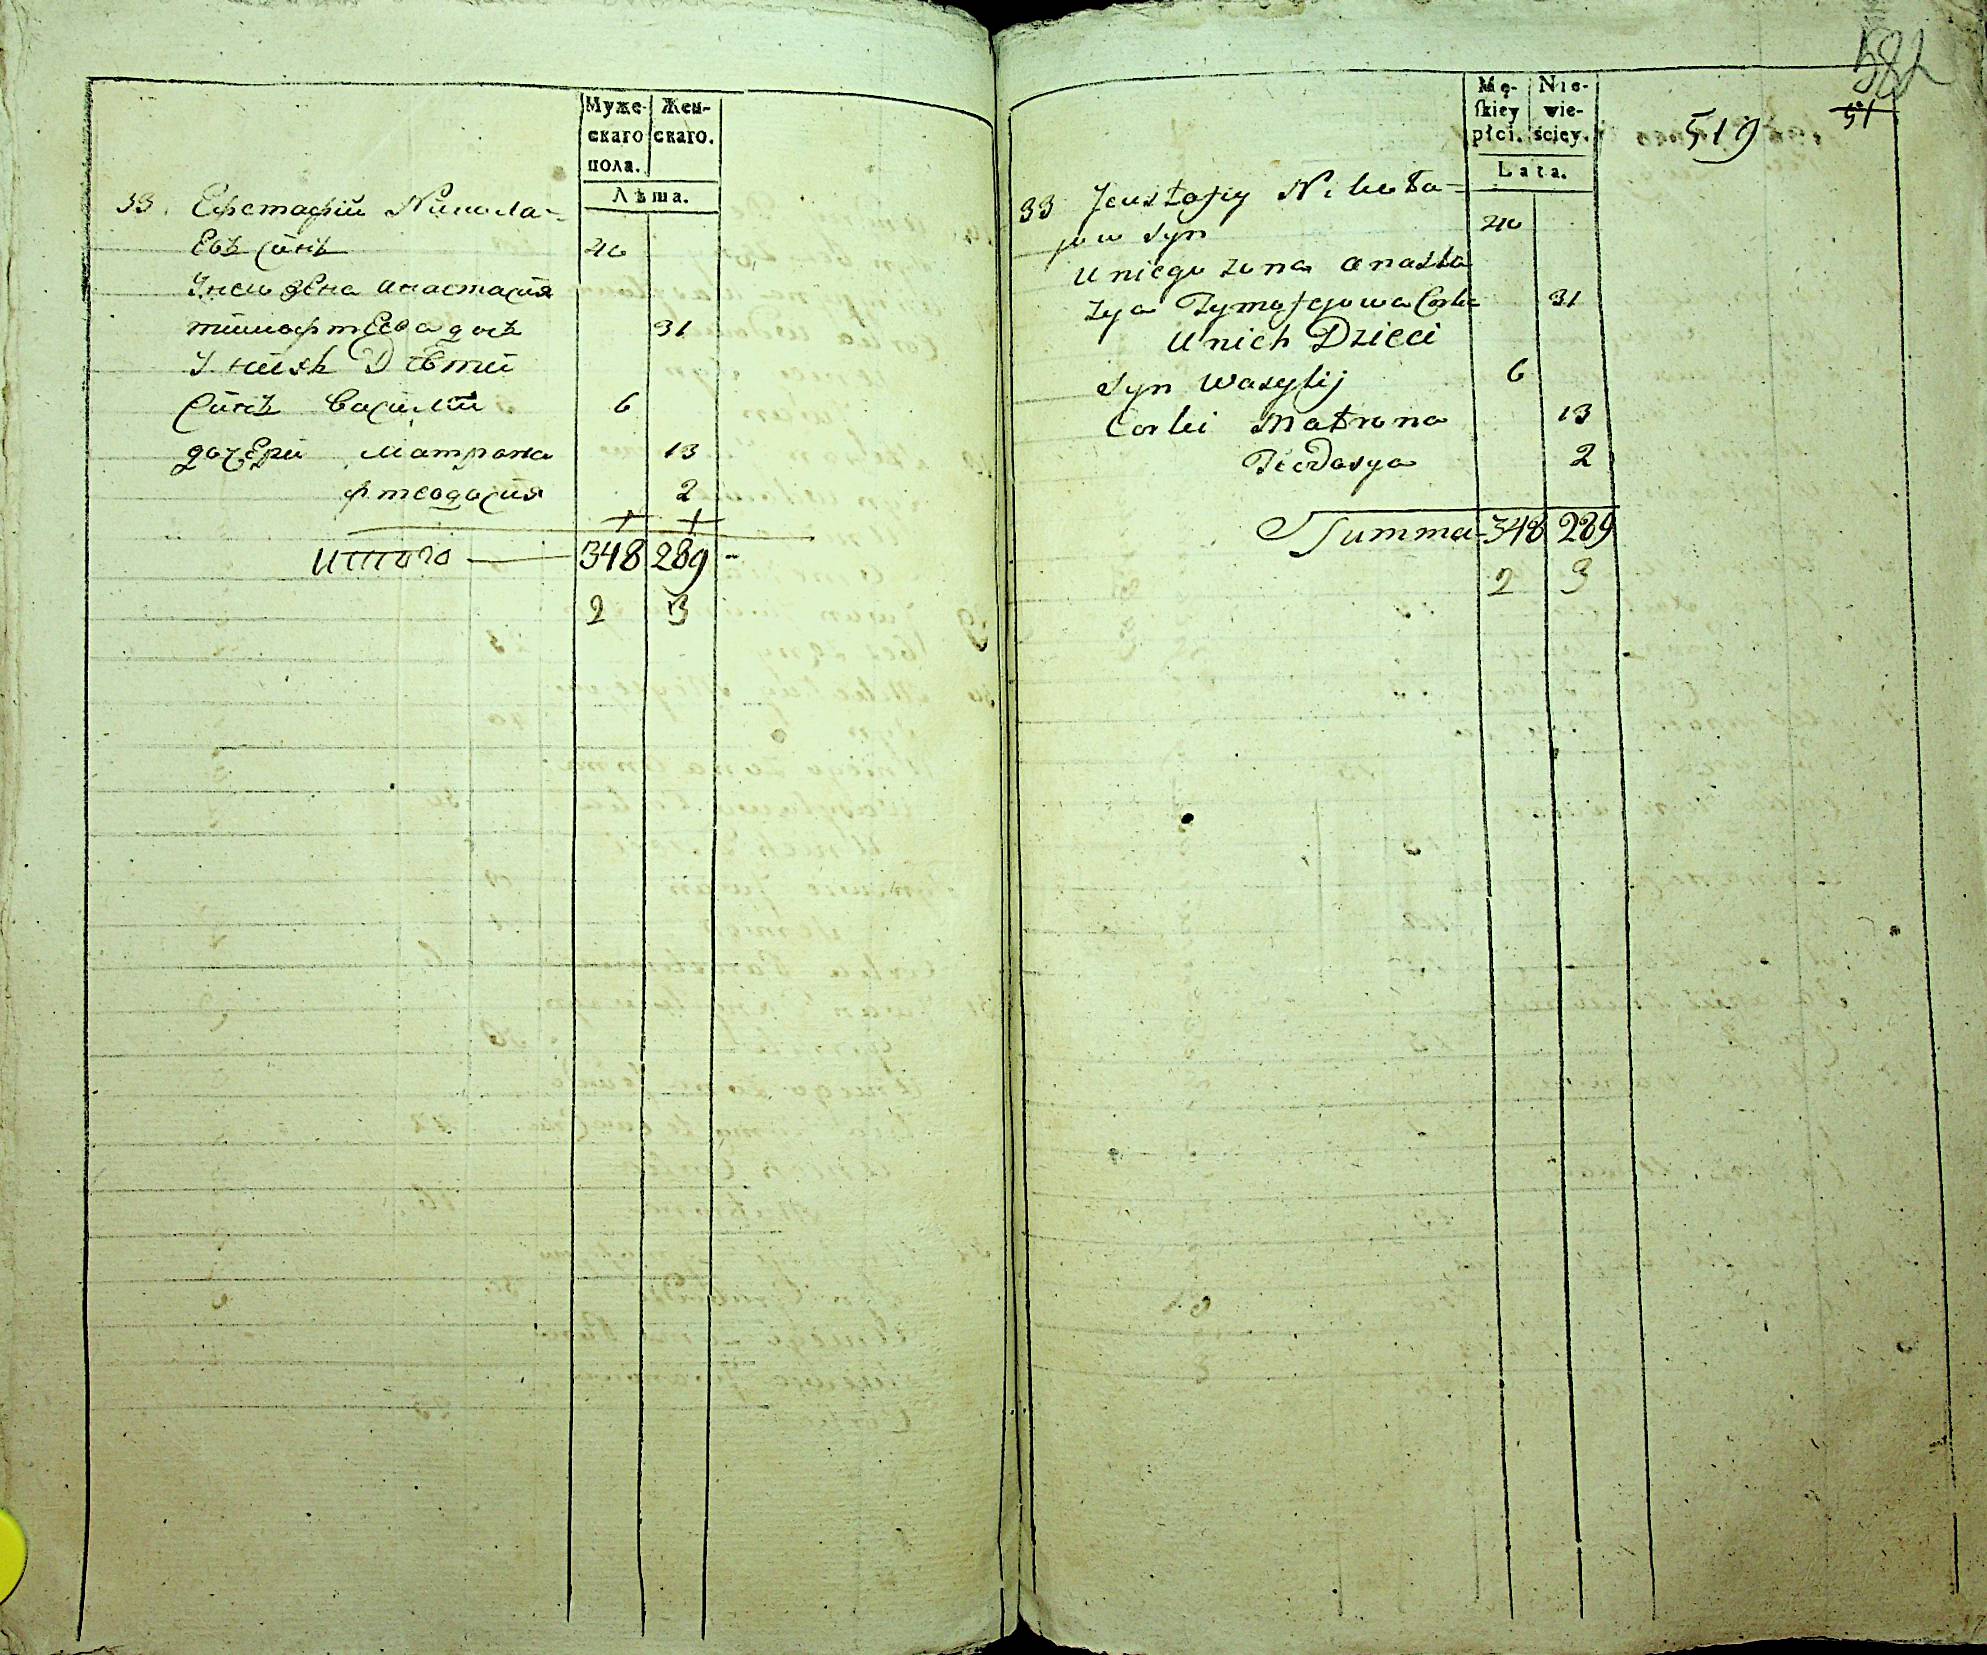 Муже-
скаго
пола.
Жен-
скаго.
Лѣта.
33. Ефстафій Никола-
Евъ сынъ 40
Унего жена анастасия
тимофтеева дочь 31
У нихъ Дѣти
Сынъ василій 6
дочери матрона 13
фтеодосия 2
итого 348 289
2 3
Mę-
skiey
płci.
Nie-
wie-
ściey.
Lata.
582
51
519
33 Jeustafiy Nikoła=
jow syn 40
Uniego zona anasta
zya Tymofejowa Corka 31
Unich Dzieci
syn wasylij 6
Corki Matrona 13
Teodosya 2
Summa 348 289
2 3